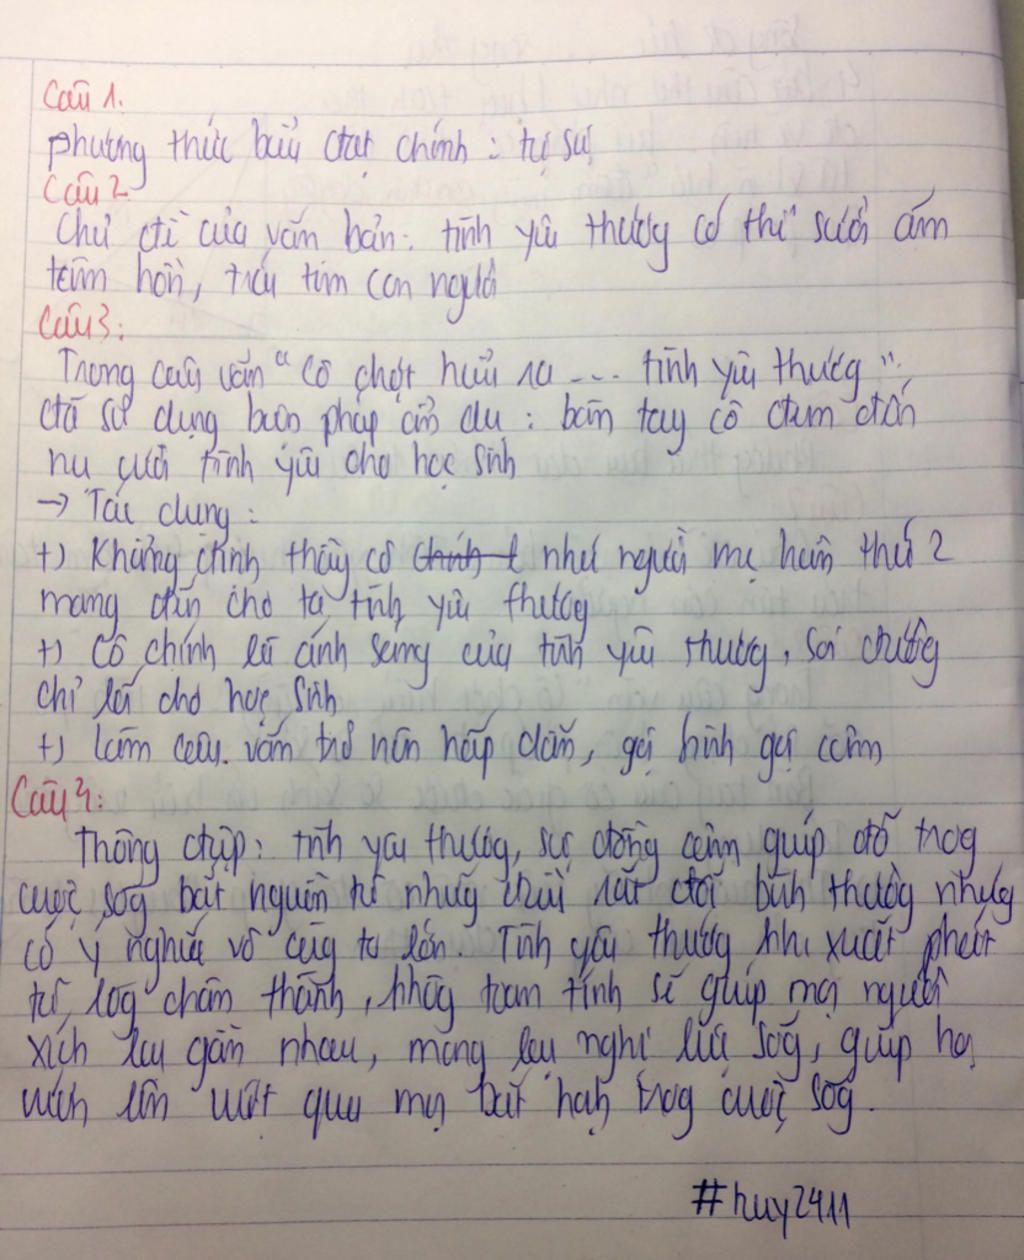 Câu 1.
phương thức biểu đạt chính : tự sự
Câu 2
Chủ đề của văn bản : tình yêu thương có thể sưởi ấm
tâm hồn, trái tim con người
Câu 3:
Trong câu văn " Cô chợt hiểu ra ... tình yêu thương "
đã sử dụng biện pháp ẩn dụ : bàn tay cô đem đến
nụ cười tình yêu cho học sinh
→ Tác dụng :
+) Khẳng định thầy cô như người mẹ hiền thứ 2
mang đến cho ta tình yêu thương
+) Cô chính là ánh sáng của tình yêu thương, soi đường
chỉ lối cho học sinh
+) Làm câu văn trở nên hấp dẫn, gợi hình gợi cảm
Câu 4:
Thông điệp : tình yêu thương, sự đồng cảm giúp đỡ trog
cuộc sốg bắt nguồn từ nhữg điều rất đỗi bình thườg nhưg
có ý nghĩa vô cùg to lớn. Tình yêu thương khi xuất phát
từ lòg chân thành, khôg toan tính sẽ giúp mọi người
xích lại gần nhau, mang lại nghị lực sốg, giúp họ
vượt qua mọi bất hạh trog cuộc sốg.
#huy2411